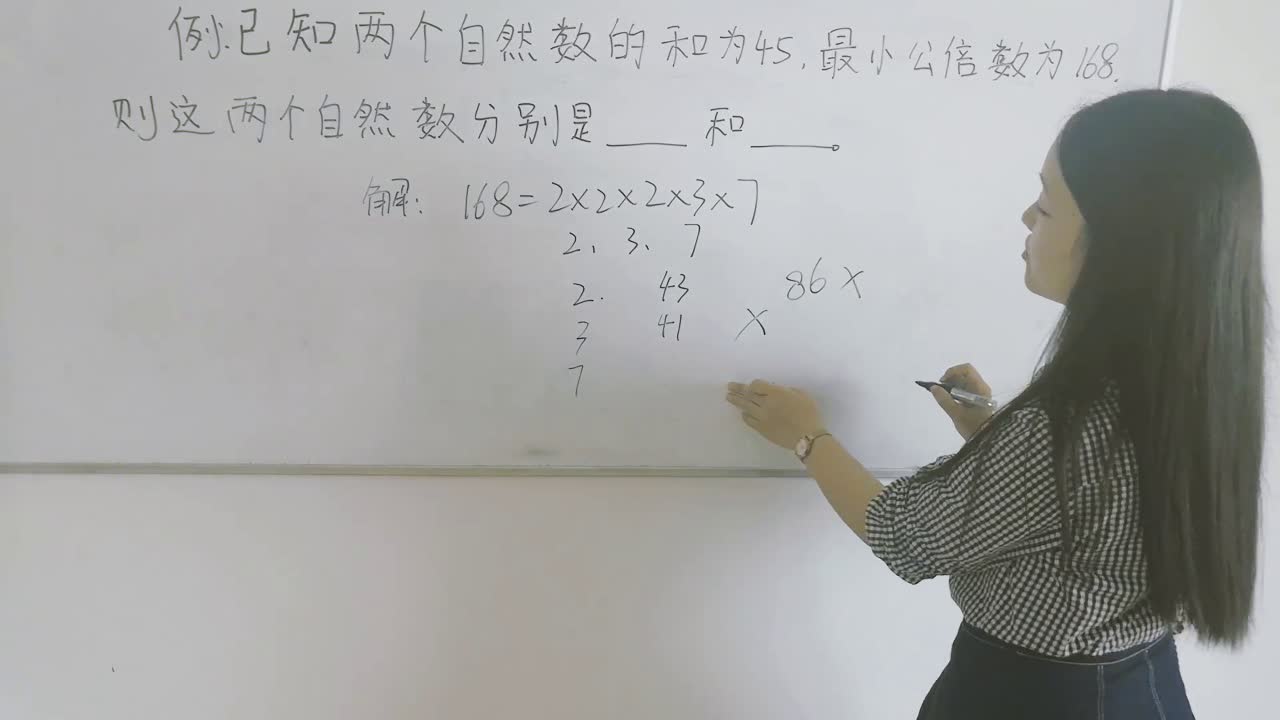 例:已知两个自然数的和为45,最小公倍数为168.
则这两个自然数分别是____和____。
解: 168=2×2×2×3×7
2、3、7
2. 43 86 ×
3 41 ×
7